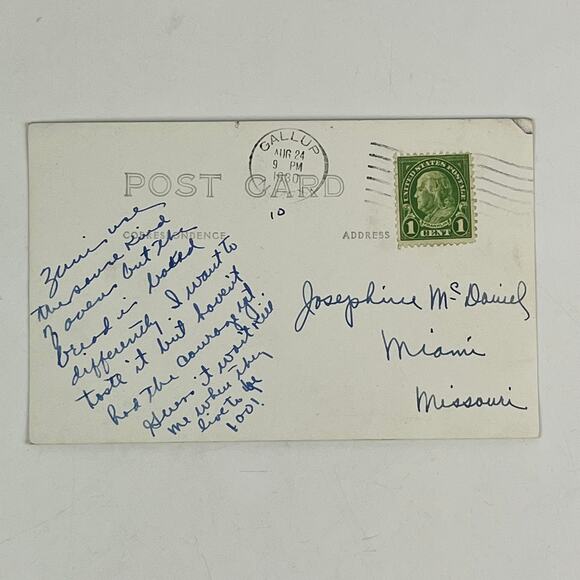 GALLUP
AUG 24
9 PM
1930
POST CARD
10
CORRESPONDENCE
ADDRESS
UNITED STATES POSTAGE
1 CENT 1
Zunis use
the same kind
of ovens but the
bread is baked
differently. I want to
taste it but haven't
had the courage yet
Guess it won't kill
me when they
live to be
100!
Josephine McDaniel,
Miami
Missouri